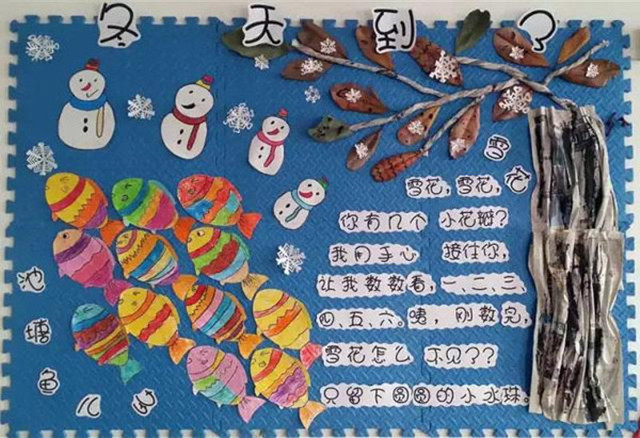 冬天到了
雪花
雪花,雪花,
你有几个 小花瓣?
我用手心 接住你,
让我数数看,一、二、三、
四、五、六。咦,刚数完,
雪花怎么 不见了?
只留下圆圆的小水珠。
池塘鱼儿